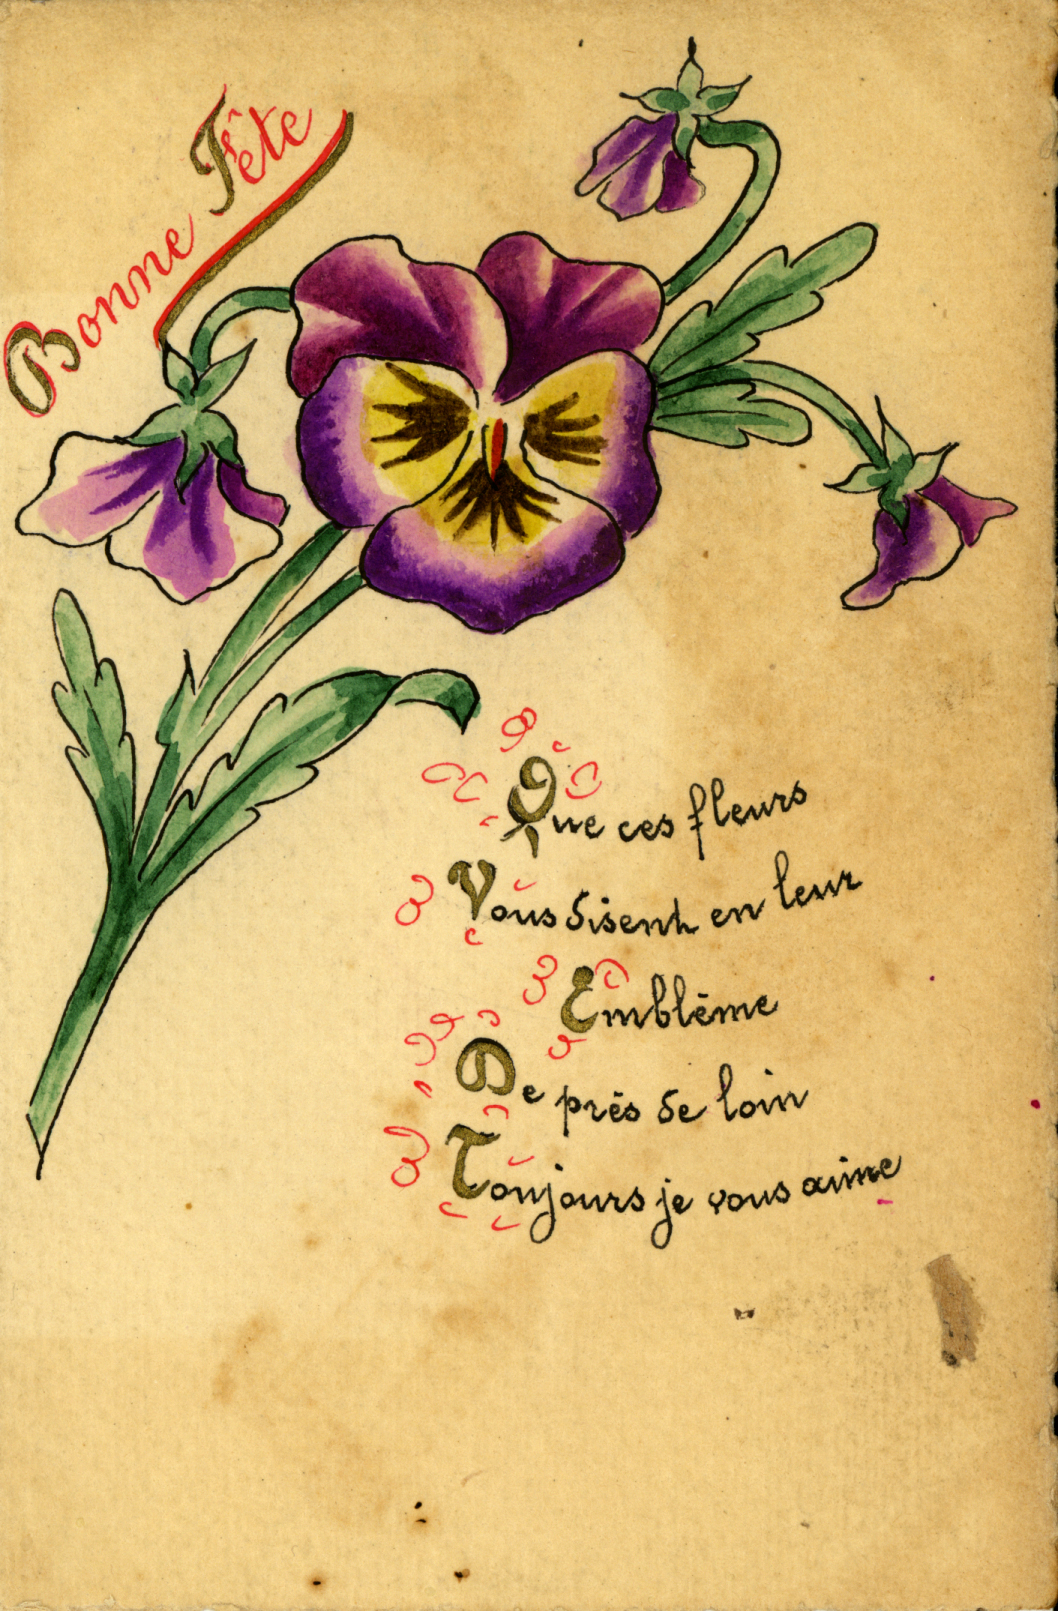 Bonne Fête
Que ces fleurs
Vous disent en leur
Emblême
De près de loin
Toujours je vous aime